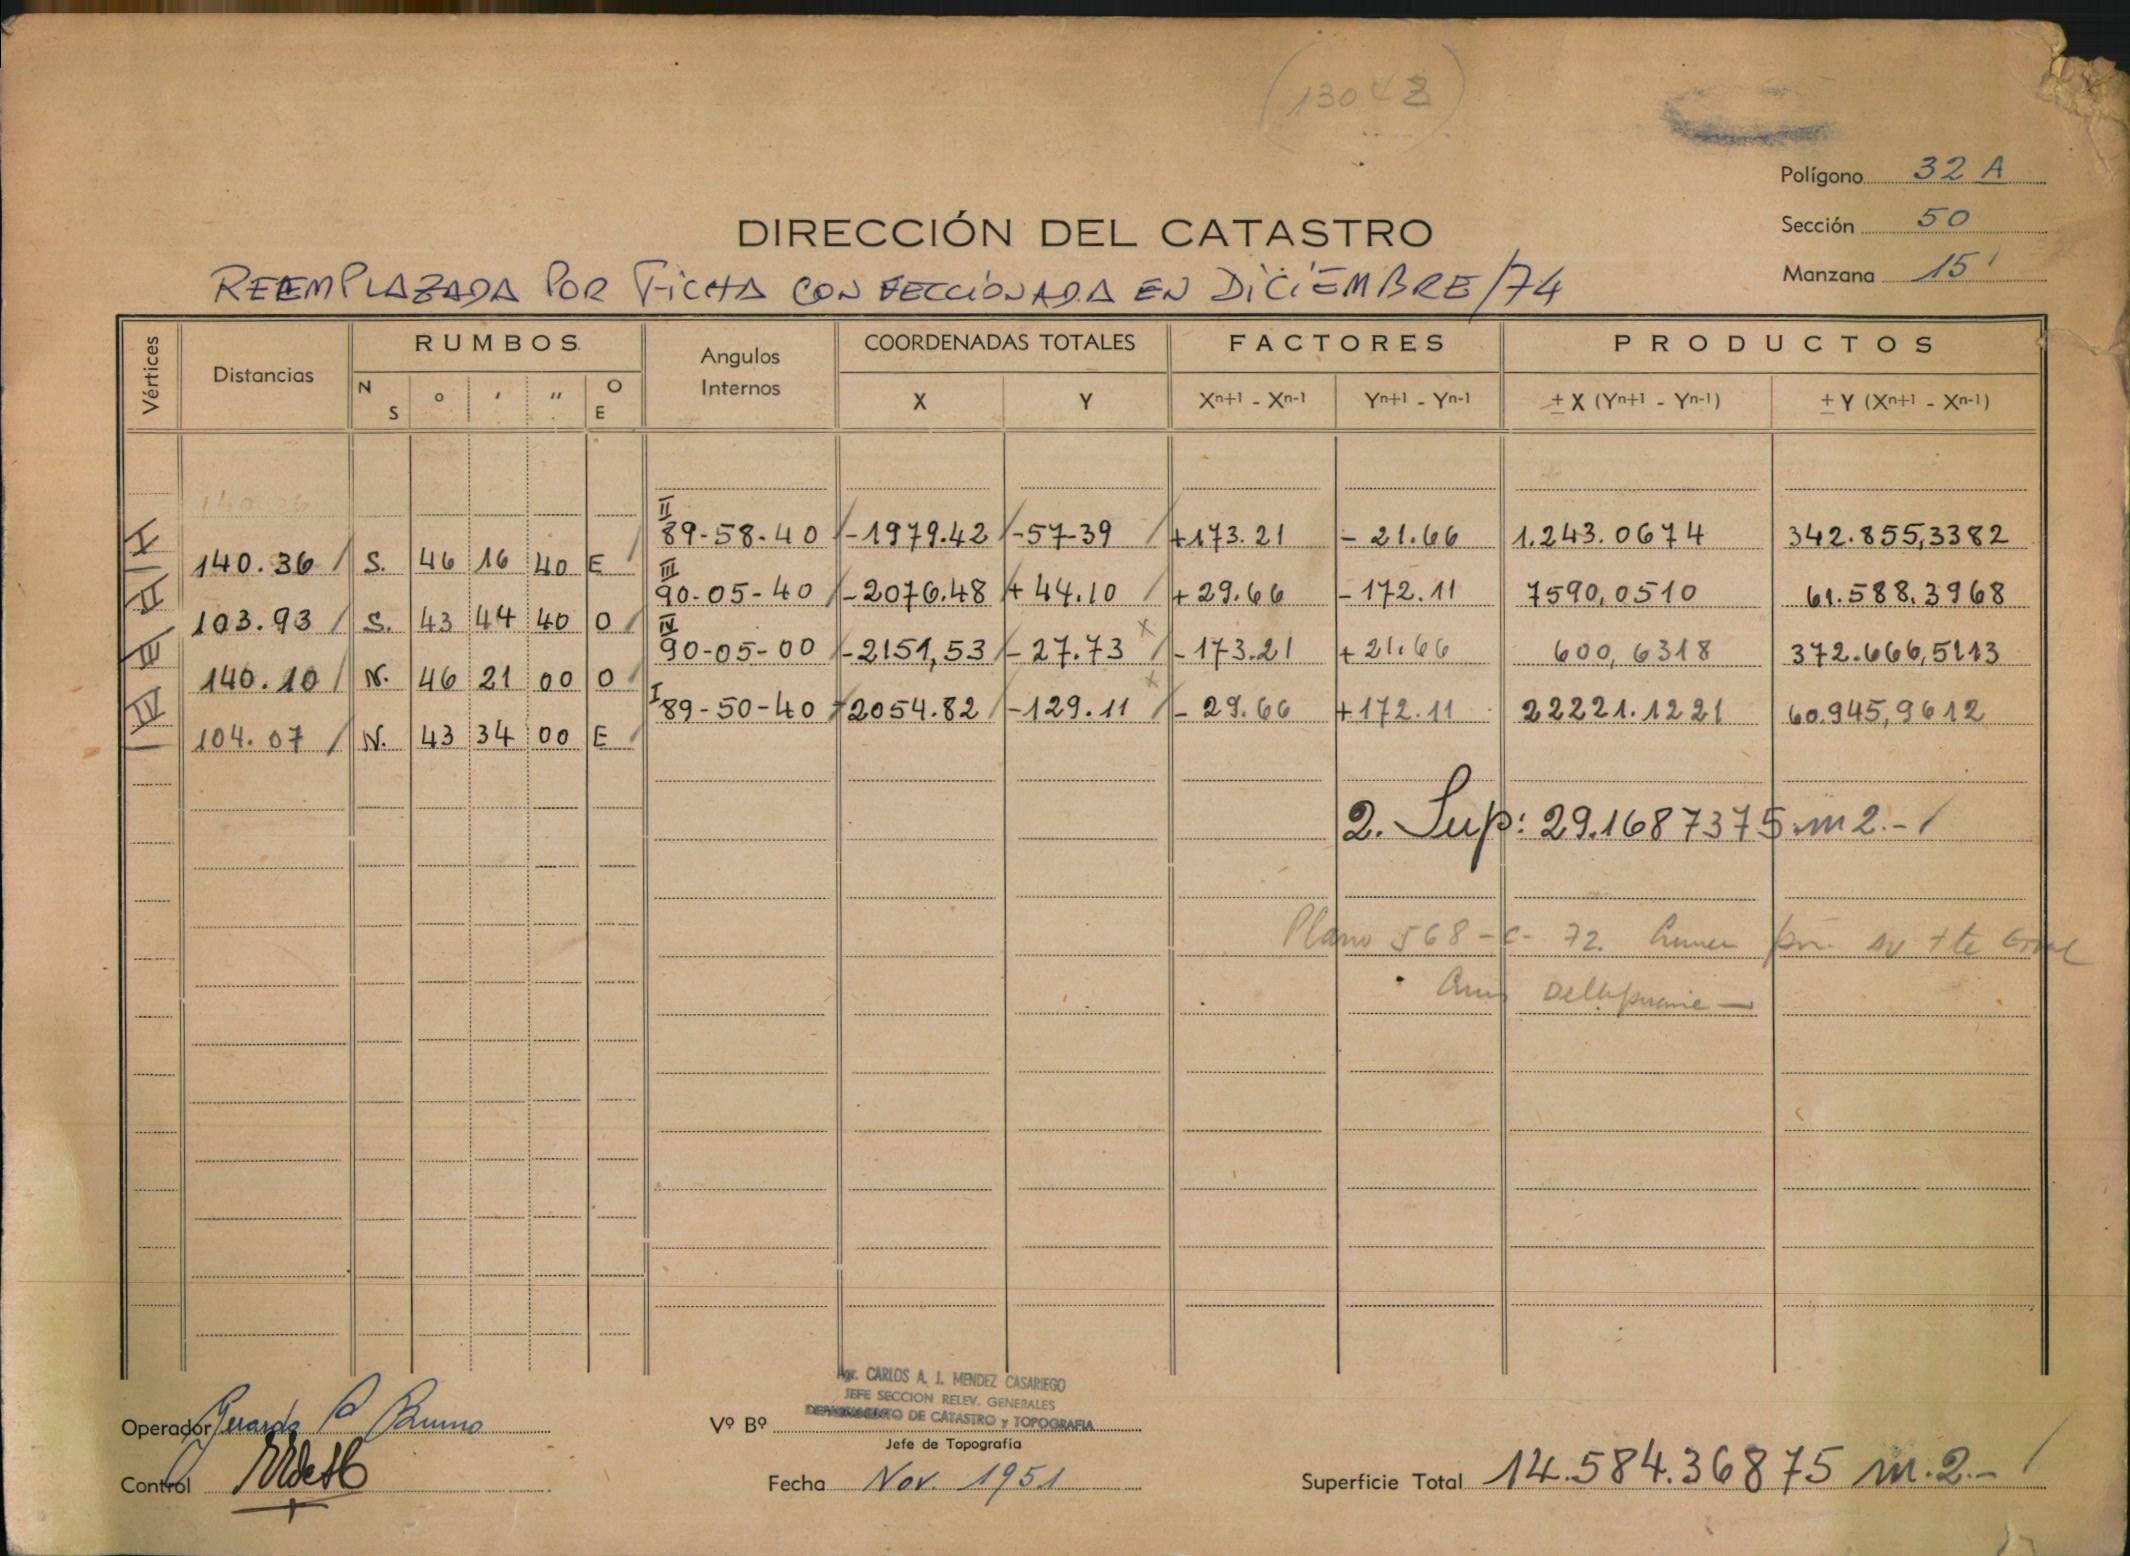 (13042)
Polígono 32 A
Sección 50
Manzana 15'
DIRECCIÓN DEL CATASTRO
REEMPLAZADA POR FICHA CONFECCIONADA EN DICIEMBRE/74
Vértices Distancias RUMBOS N S ° ' " O E Angulos Internos COORDENADAS TOTALES X Y FACTORES Xn+1 - Xn-1 Yn+1 - Yn-1 PRODUCTOS ± X (Yn+1 - Yn-1) ± Y (Xn+1 - Xn-1)
I II 89-58-40 -1979.42 -57-39 +173.21 - 21.66 1.243.0674 342.855,3382
140.36 S. 46 16 40 E
II III 90-05-40 -2076.48 + 44.10 + 29.66 - 172.11 7590,0510 61.588.3968
103.93 S. 43 44 40 O
III IV 90-05-00 -2151,53 - 27.73 x - 173.21 + 21.66 600,6318 372.666,5113
140.10 N. 46 21 00 O
IV I 89-50-40 -2054.82 -129.11 x - 29.66 +172.11 22221.1221 60.945,9612
104.07 N. 43 34 00 E
I
2. Sup: 29.1687375 m2.-
Plano 568-C-72.
Operador Gerardo P Bruno
Control
Vº Bº
Agr. CARLOS A. I. MENDEZ CASARIEGO
JEFE SECCION RELEV. GENERALES
DEPARTAMENTO DE CATASTRO y TOPOGRAFIA
Jefe de Topografía
Fecha Nov. 1951
Superficie Total 14.584.36875 m.2.-